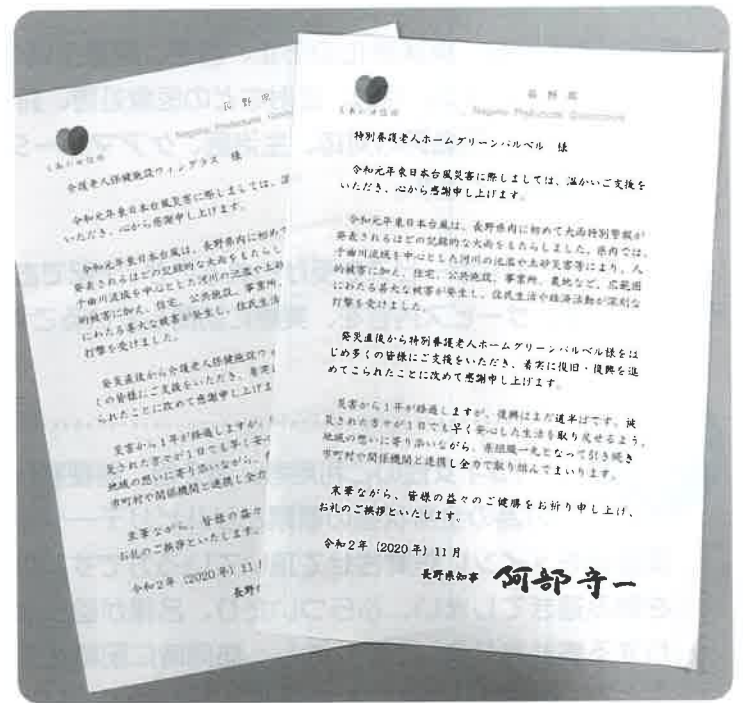 長野県
Nagano Prefectural Government
介護老人保健施設ウィングラス 様
令和元年東日本台風災害に際しましては、温
いただき、心から感謝申し上げます。
令和元年東日本台風は、長野県内に初めて
発表されるほどの記録的な大雨をもたらし
千曲川流域を中心とした河川の氾濫や土砂
的被害に加え、住宅、公共施設、事業所、
にわたる甚大な被害が発生し、住民生活
打撃を受けました。
発災直後から介護老人保健施設ウィ
くの皆様にご支援をいただき、着実
られたことに改めて感謝申し上げま
災害から1年が経過しますが、
災された方々が1日でも早く安心
地域の想いに寄り添いながら、
市町村や関係機関と連携し全力
末筆ながら、皆様の益々
お礼のご挨拶といたします。
令和2年(2020年)11月
長野
長野県
Nagano Prefectural Government
特別養護老人ホームグリーンバルベル 様
令和元年東日本台風災害に際しましては、温かいご支援を
いただき、心から感謝申し上げます。
令和元年東日本台風は、長野県内に初めて大雨特別警報が
発表されるほどの記録的な大雨をもたらしました。県内では、
千曲川流域を中心とした河川の氾濫や土砂災害等により、人
的被害に加え、住宅、公共施設、事業所、農地など、広範囲
にわたる甚大な被害が発生し、住民生活や経済活動が深刻な
打撃を受けました。
発災直後から特別養護老人ホームグリーンバルベル様をは
じめ多くの皆様にご支援をいただき、着実に復旧・復興を進
めてこられたことに改めて感謝申し上げます。
災害から1年が経過しますが、復興はまだ道半ばです。被
災された方々が1日でも早く安心した生活を取り戻せるよう、
地域の想いに寄り添いながら、県組織一丸となって引き続き
市町村や関係機関と連携し全力で取り組んでまいります。
末筆ながら、皆様の益々のご健勝をお祈り申し上げ、
お礼のご挨拶といたします。
令和2年(2020年)11月
長野県知事 阿部守一